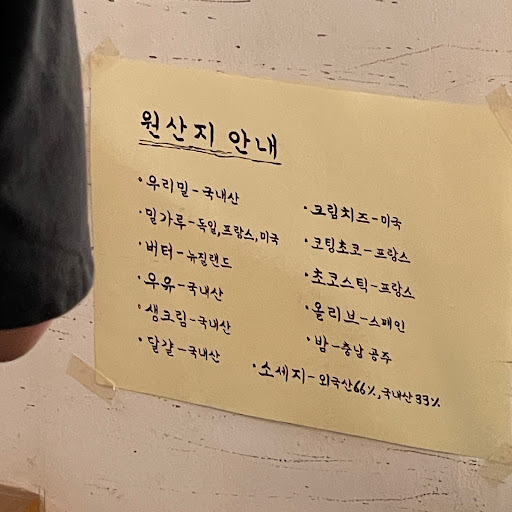 원산지 안내
· 우리밀 - 국내산
· 밀가루 - 독일, 프랑스, 미국
· 버터 - 뉴질랜드
· 우유 - 국내산
· 생크림 - 국내산
· 달걀 - 국내산
· 크림치즈 - 미국
· 코팅초코 - 프랑스
· 초코스틱 - 프랑스
· 올리브 - 스페인
· 밤 - 충남 공주
· 소세지 - 외국산 66%, 국내산 33%